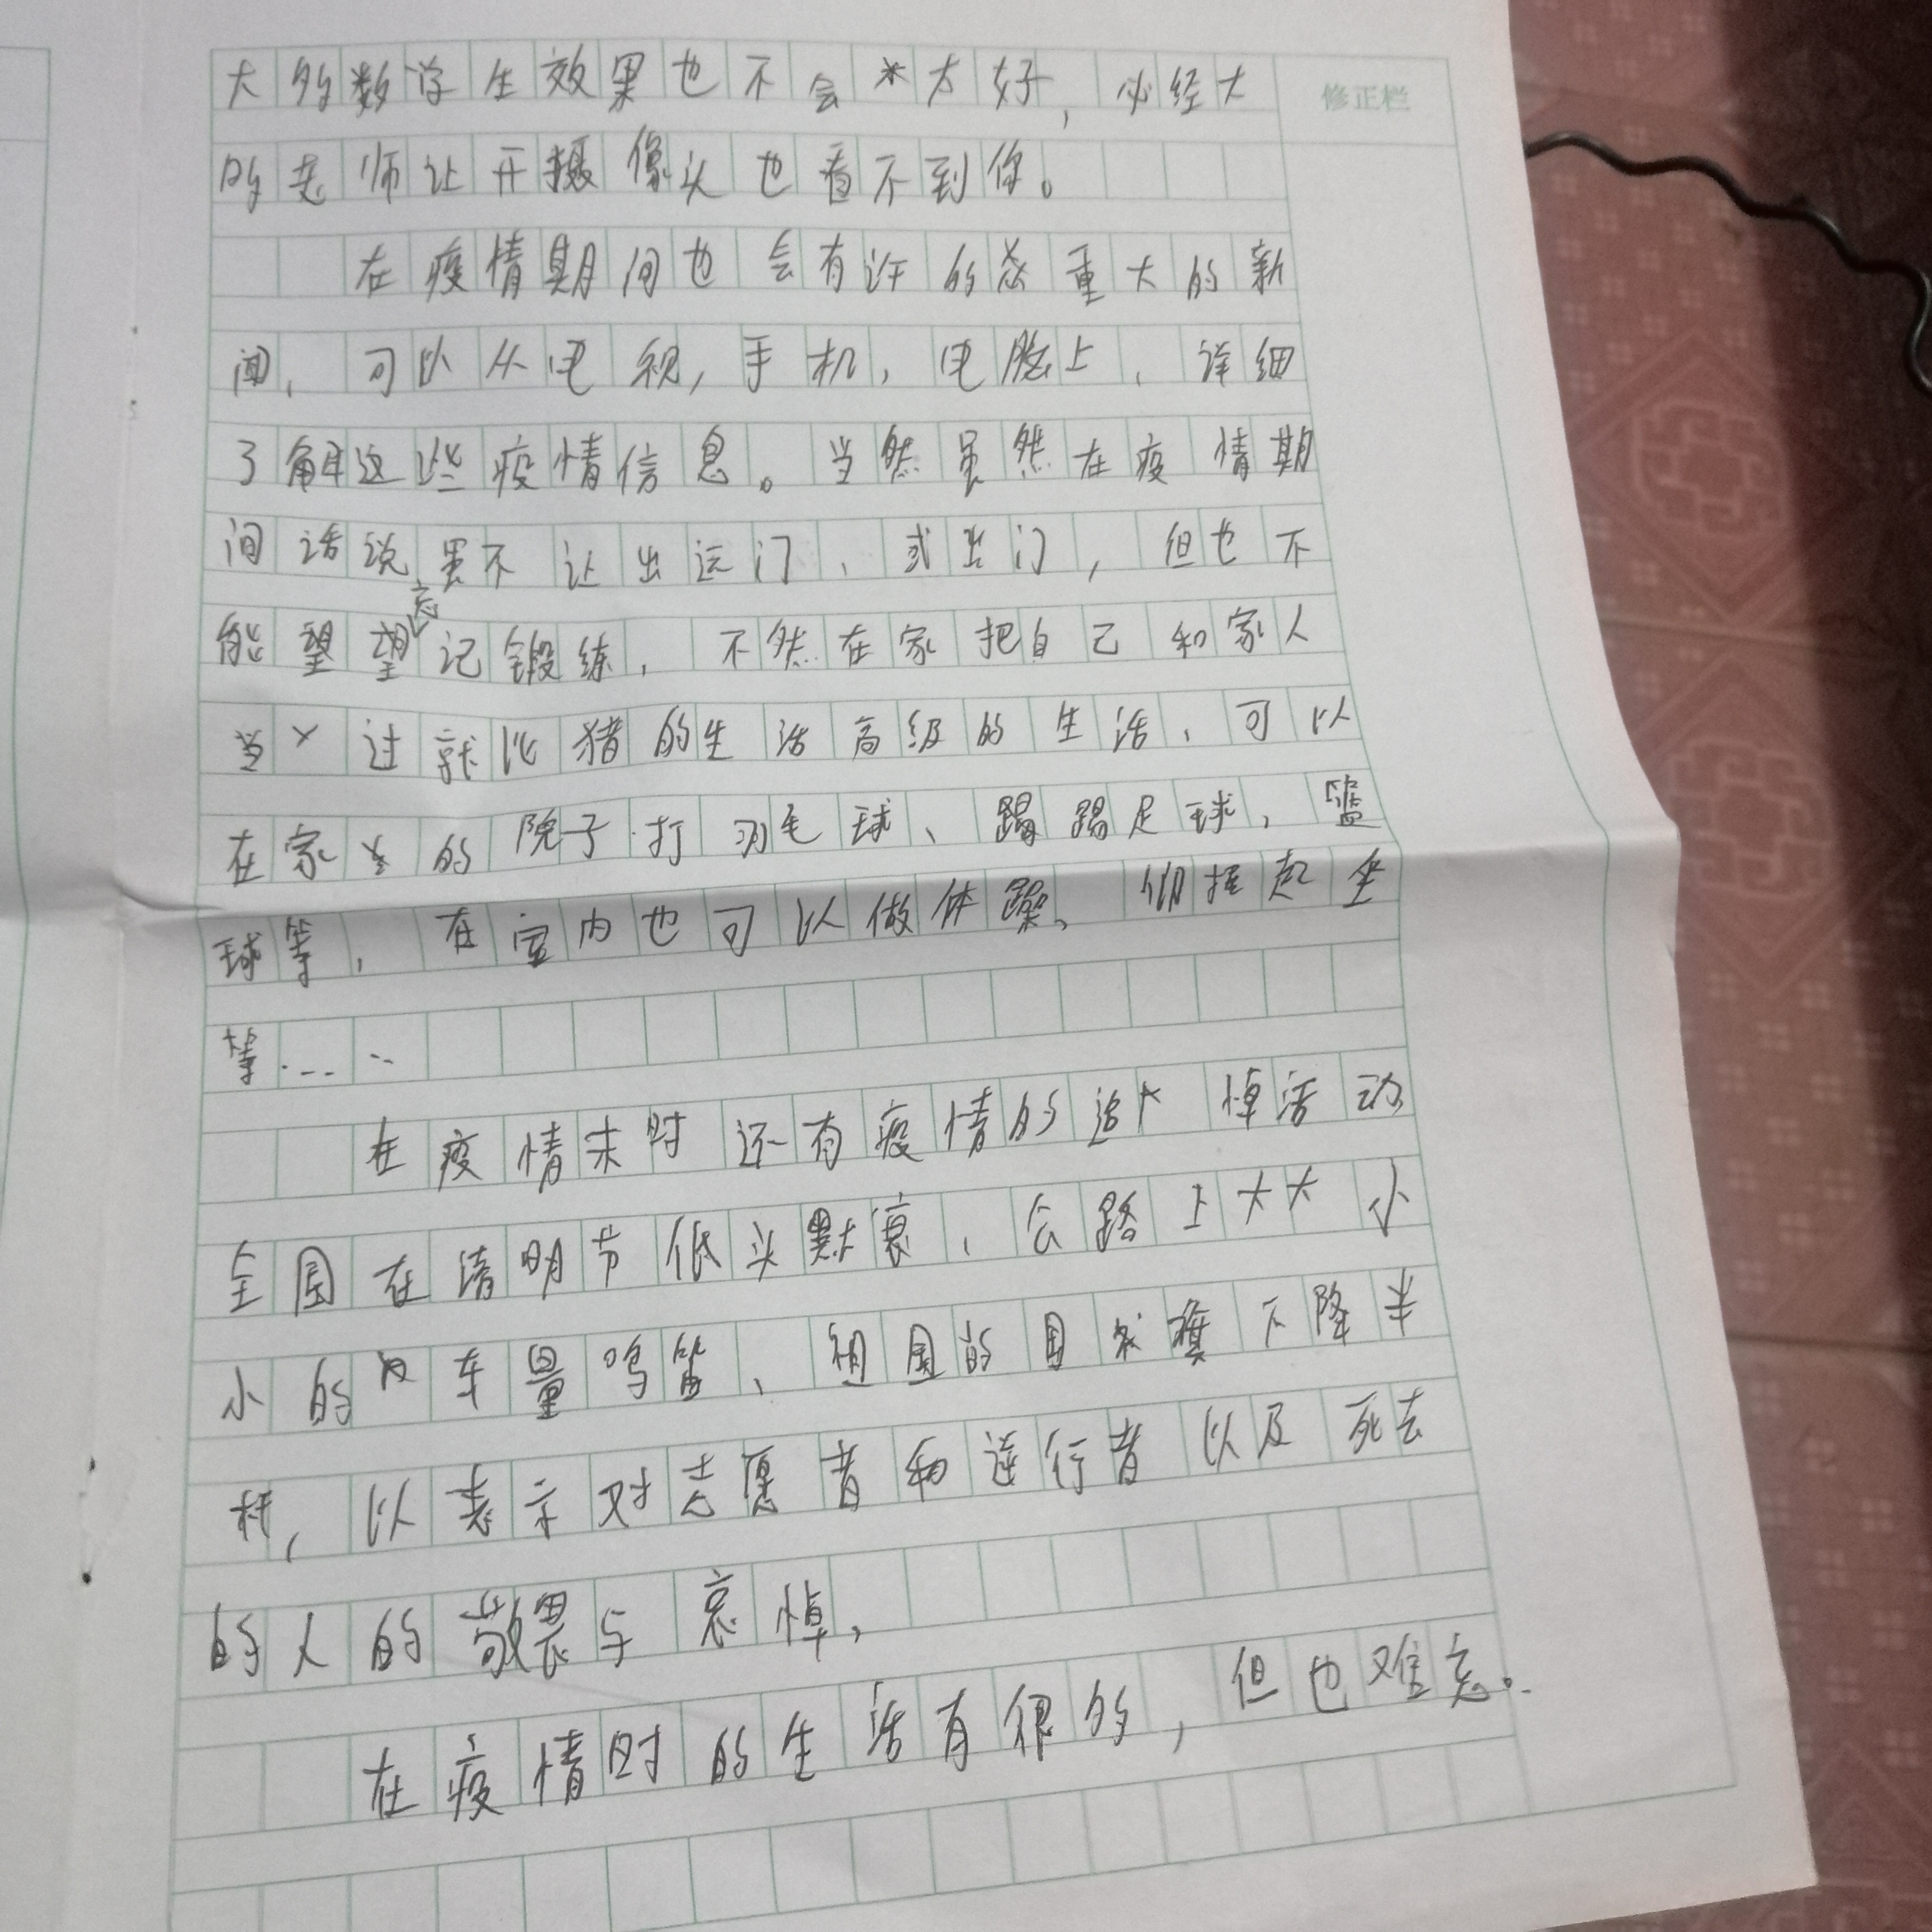 大多数学生效果也不会太好，必经大
多老师让开摄像头也看不到你。
在疫情期间也会有许多重大的新
闻，可以从电视，手机，电脑上，详细
了解这些疫情信息。当然虽然在疫情期
间话说虽不让出远门、或出门，但也不
能忘记锻练，不然在家把自己和家人
当过就比猪的生活高级的生活，可以
在家的院子打羽毛球、踢踢足球，篮
球等，在室内也可以做体躁、仰起坐
等……
在疫情末时还有疫情的追悼活动
全国在清明节低头默哀、公路上大大小
小的车量鸣笛、祖国的国旗下降半
杆，以表示对志愿者和逆行者以及死去
的人的敬畏与哀悼，
在疫情时的生活有很多，但也难忘。
修正栏